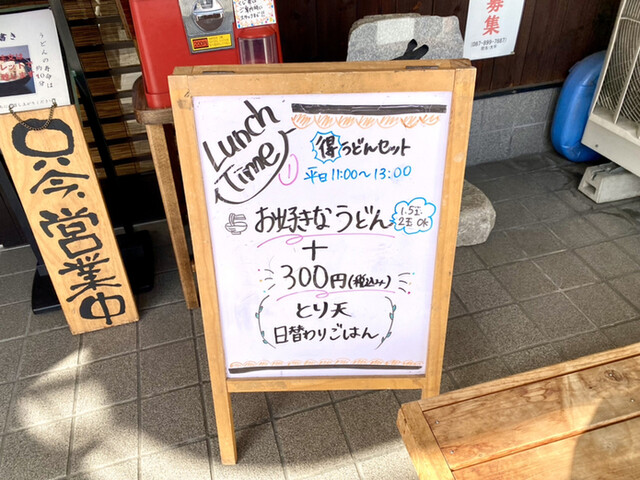 Lunch
Time
①
得うどんセット
平日 11:00〜13:00
お好きなうどん
1.5玉
2玉 OK
+
300円(税込み)
とり天
日替わりごはん
只今営業中
募集